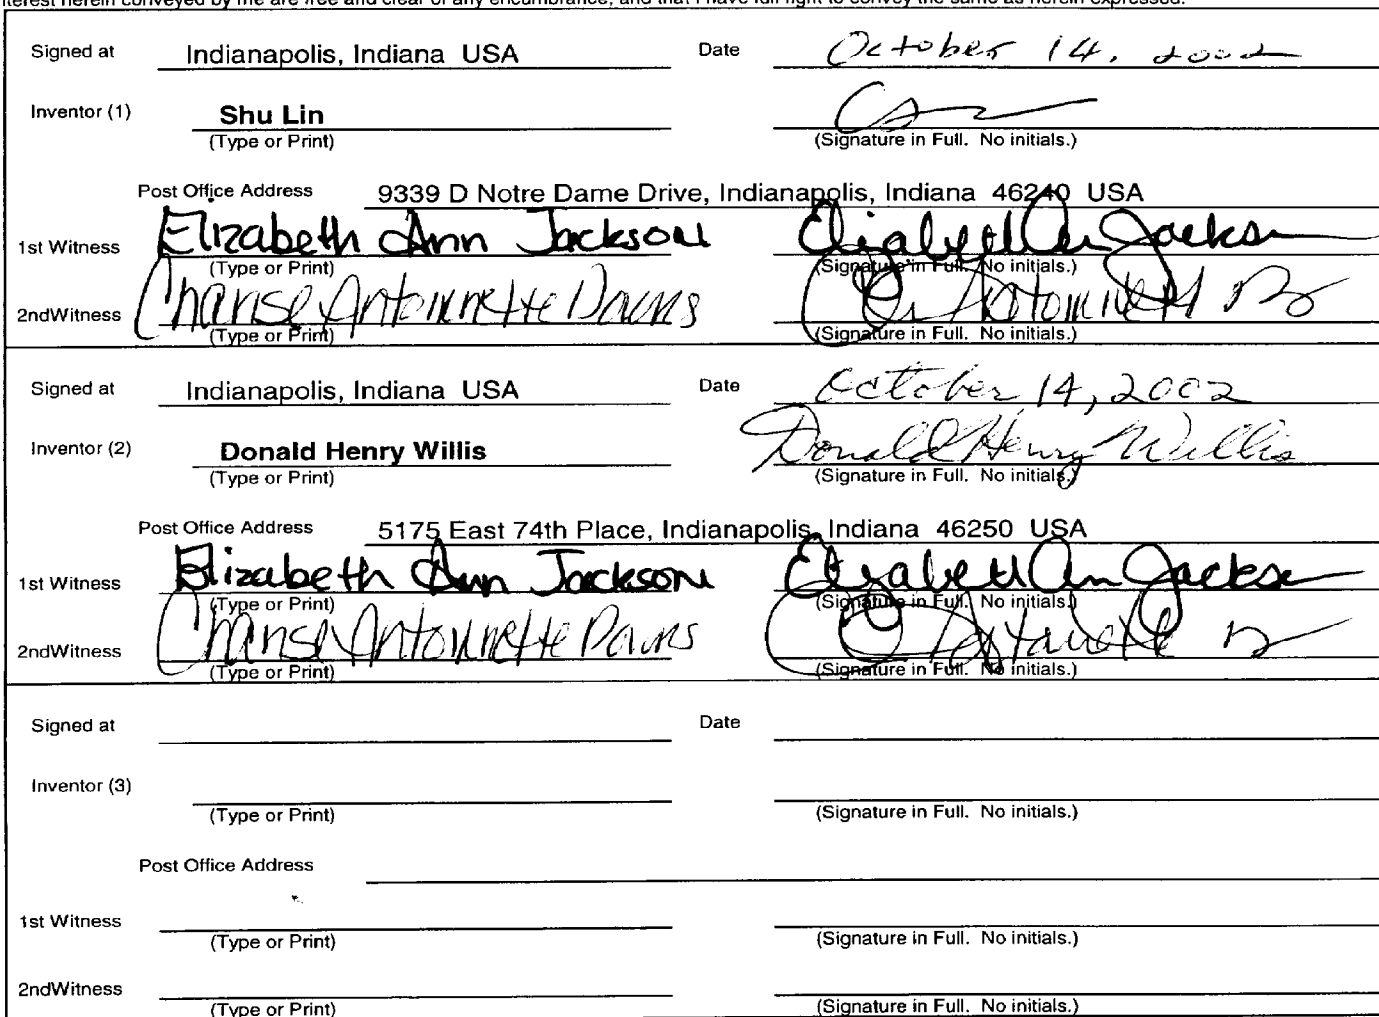 terest herein conveyed by me are free and clear of any encumbrance, and that I have full right to convey the same as herein expressed.
Signed at Indianapolis, Indiana USA Date October 14, 2002
Inventor (1) Shu Lin
(Type or Print) (Signature in Full. No initials.)
Post Office Address 9339 D Notre Dame Drive, Indianapolis, Indiana 46240 USA
1st Witness Elizabeth Ann Jackson Elizabeth Ann Jackson
(Type or Print) (Signature in Full. No initials.)
2ndWitness Antoinnette
(Type or Print) (Signature in Full. No initials.)
Signed at Indianapolis, Indiana USA Date October 14, 2002
Inventor (2) Donald Henry Willis Donald Henry Willis
(Type or Print) (Signature in Full. No initials.)
Post Office Address 5175 East 74th Place, Indianapolis, Indiana 46250 USA
1st Witness Elizabeth Ann Jackson Elizabeth Ann Jackson
(Type or Print) (Signature in Full. No initials.)
2ndWitness Antoinnette
(Type or Print) (Signature in Full. No initials.)
Signed at Date
Inventor (3)
(Type or Print) (Signature in Full. No initials.)
Post Office Address
1st Witness
(Type or Print) (Signature in Full. No initials.)
2ndWitness
(Type or Print) (Signature in Full. No initials.)